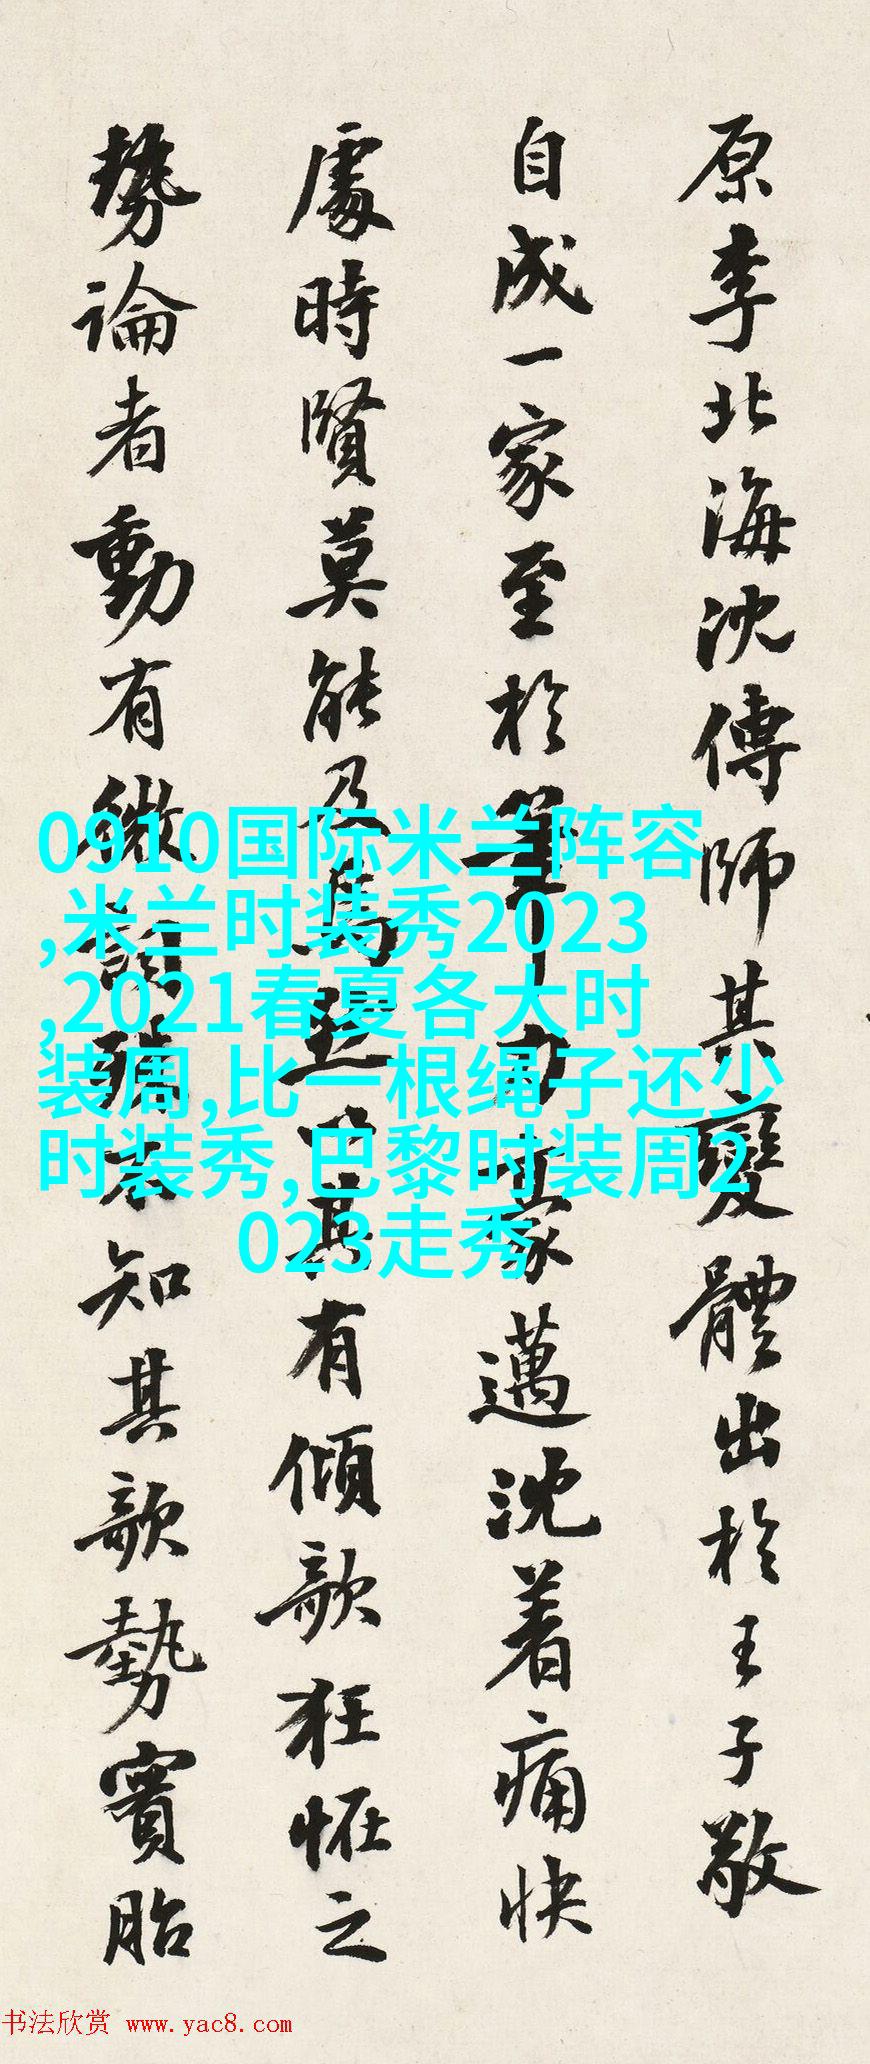 原李北海沈傳師其變體出於王子敬
自成一家至於筆力豪邁沈着痛快
處時賢莫能及焉然以其有傾欹狂恠之
勢論者動有微詞殊不知其欹勢實胎
0910国际米兰阵容
,米兰时装秀2023
,2021春夏各大时
装周,比一根绳子还少
时装秀,巴黎时装周2
023走秀
书法欣赏 www.yac8.com